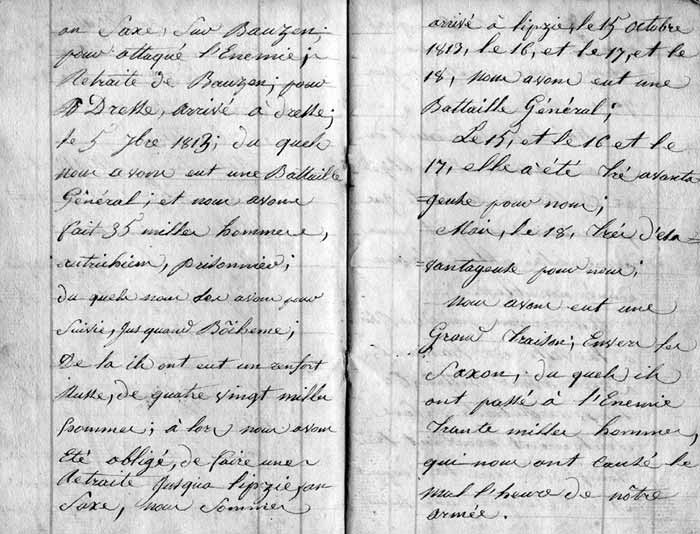 en Saxe, sur Bauzen;
pour attaqué l'Enemie;
Retraité de Bauzen; pour
Dresse, arrivé à dresse;
le 5 7bre 1813; du quels
nous avons eut une Battaille
Général; et nous avons
fait 35 milles hommere,
autrichien, prisonnier;
du quels nous les avons pour
suivie, Jusquand Böiheme;
De la ils ont eut un renfort
Russe, de quatre vingt milles
hommes; à lors nous avons
Eté obligé, de faire une
Retraité Jusqua lipzie, en
Saxe, nous Sommes
arrivé à lipzie, le 15 octobre
1813, le 16, et le 17, et le
18, nous avons eut une
Battaille Général;
Le 15, et le 16 et le
17, elle à été tré avanta
=geuse pour nous;
Mais, le 18, trés d'esa=
=vantageuse pour nous;
nous avons eut une
Grand traison, Envers les
Saxon, du quels ils
ont passé à l'Enemie
trante milles hommes,
qui nous ont causé le
mal l'heure de nôtre
armée.